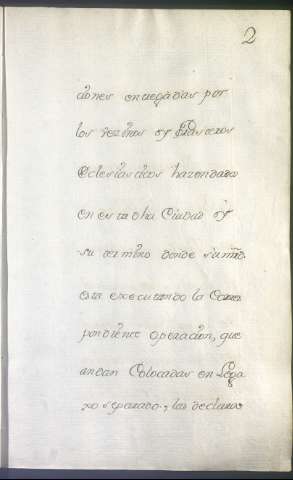 2
ciones entregadas por
los vezinos y
Eclesiasticos hazendados
en esta dha Ciudad y
su termino donde su mrd
esta executando la Corres
pondiente operacion, que
andan Colocadas en Lega
xo separado, las declarac